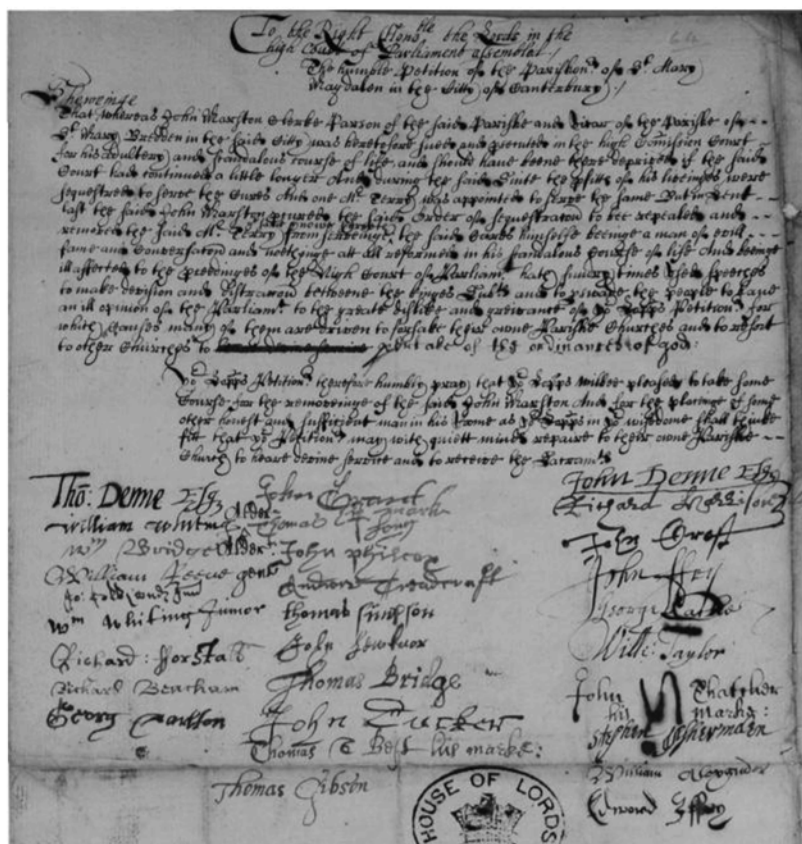 To the Right Hono:ble the Lords in the
high Court of Parliament assembled
The humble Petition of the Parishion:rs of St. Mary
Magdalen in the Citty of Canterbury
Sheweinge
That whereas John Marston Clerke Parson of the said Parishe and Vicar of the Parishe of
St. Mary Bredden in the said Citty was heretofore sued and in the high Comission Court
for his Adultery and scandalous course of life and should have beene there deprived if the said
Court had continued a little longer And during the said Suite the of his liveinges were
sequestred to serve the Cures And one Mr. Terry was appointed to serve the same But in Lent
last the said John Marston the said Order of to bee repealed and
removed the said Mr. Terry from serveinge the said Cures himselfe beinge a man of evill
fame and and nothinge at all reformed in his scandalous Course of life And beinge
ill affected to the of the High Court of Parliam:t hath sundry times used speeches
to make devision and betweene the Kinges and to the people to have
an ill opinion of the Parliam:t to the greate dislike and greivance of yo:r Petition:rs for
which causes many of them are driven to forsake their owne Parishe Churches and to resort
to other Churches to partake of the ordinances of god:
Yo:r Petition:rs therefore humbly pray that yo:r wilbee pleased to take some
Course for the removeinge of the said John Marston And for the placeinge of some
other honest and sufficient man in his roome as yo:r in yo:r wisdome shall thinke
fitt that yo:r Petition:rs may with quiett mindes repaire to their owne Parishe
Church to heare devine service and to receive the Sacram:ts
Tho: Denne Esq
William Alder:
Wm Bridge Alder:
William Reeve gent
Wm Whiting Junior
Richard: Horstall
Richard Beacham
Georg
John
Thomas marke
John Philcox
Andrew
Thomas Simpson
John
Thomas Bridge
John Tucker
Thomas Best his marke:
Thomas Gibson
John Denne Esq
Richard
John
John ffry
George
Will: Taylor
John Thatcher
his marke:
Stephen
William
Edward
HOUSE OF LORDS